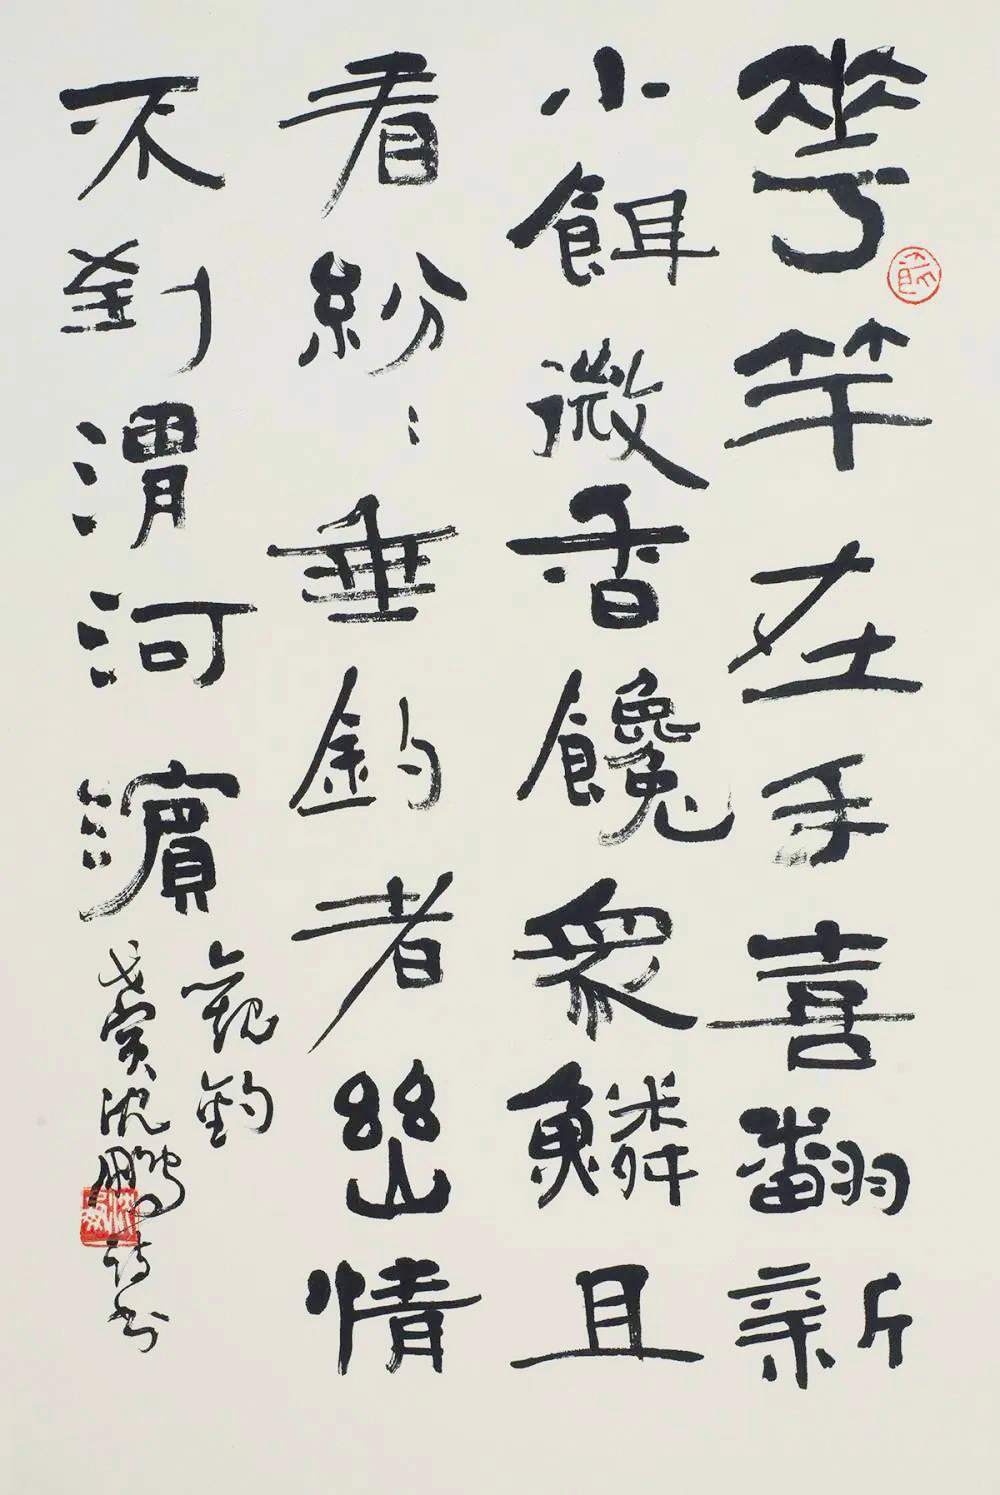 華竿在手喜翻新
小餌微香饞眾鱗且
看紛々垂釣者幽情
不到渭河濱
觀釣
戊寅沈鵬詩書